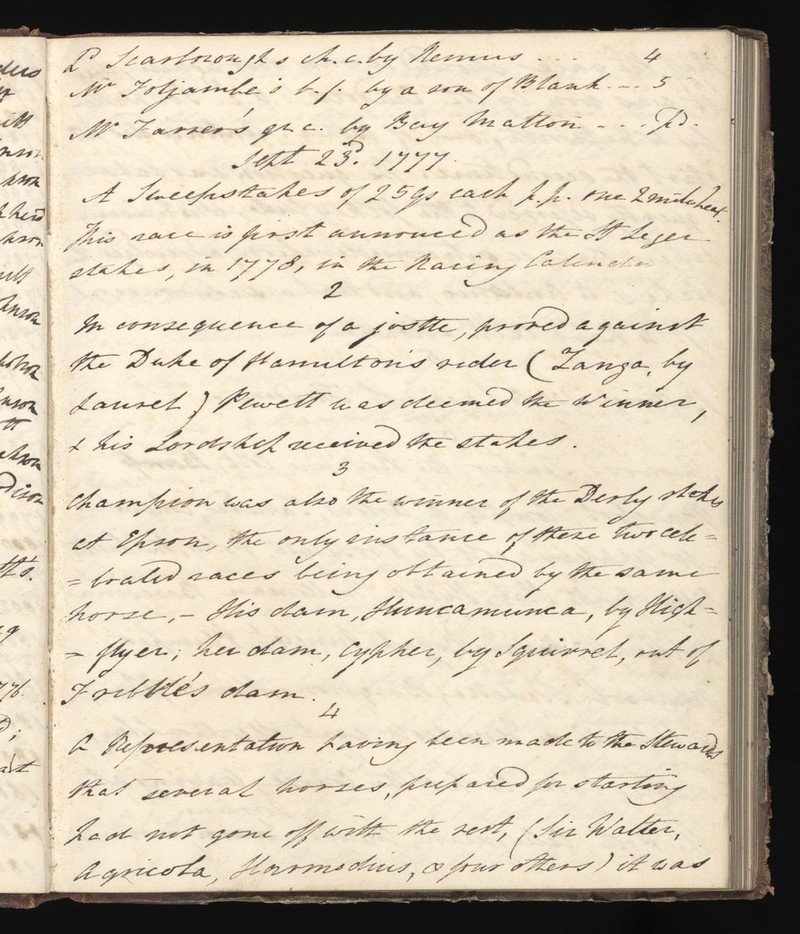 Ld Scarborough's ch. c. by Remus - - - 4
Mr Foljambe's b. f. by a son of Blank - - 5
Mr Farrer's gr. c. by Bay Malton - - - pd.
Sept 23d. 1777.
A Sweepstakes of 25 gs each p.p. one 2 mile heat.
This race is first announced as the St Leger
stakes, in 1778, in the Racing Calender
2
In consequence of a jostle, proved against
the Duke of Hamilton's rider (Zanga, by
Laurel) Pewett was deemed the Winner,
& his Lordship received the stakes.
3
Champion was also the winner of the Derby stakes
at Epson, the only instance of these two cele=
=brated races being obtained by the same
horse, - His dam, Huncamunca, by High=
= flyer; her dam, Cypher, by Squirrel, out of
Fribble's dam.
4
A Representation having been made to the Stewards
that several horses, prepared for starting
had not gone off with the rest, (Sir Walter,
Agricola, Harmodius, & four others) it was
ders
nson
nson
pherd
nson
tt's.
776